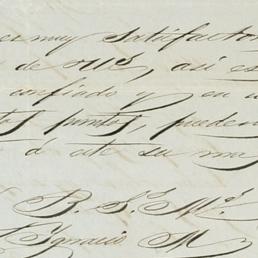 es muy satisfactor
de Md, así es
confiado y en u
tos puntos, pueden
á este su muy
B. S. M.
Ignacio M